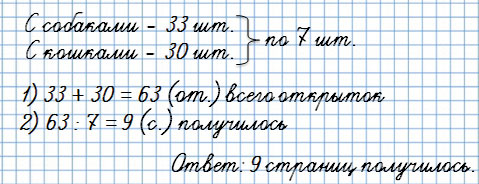 С собаками - 33 шт.
С кошками - 30 шт.
по 7 шт.
1) 33 + 30 = 63 (от.) всего открыток
2) 63 : 7 = 9 (с.) получилось
Ответ: 9 страниц получилось.